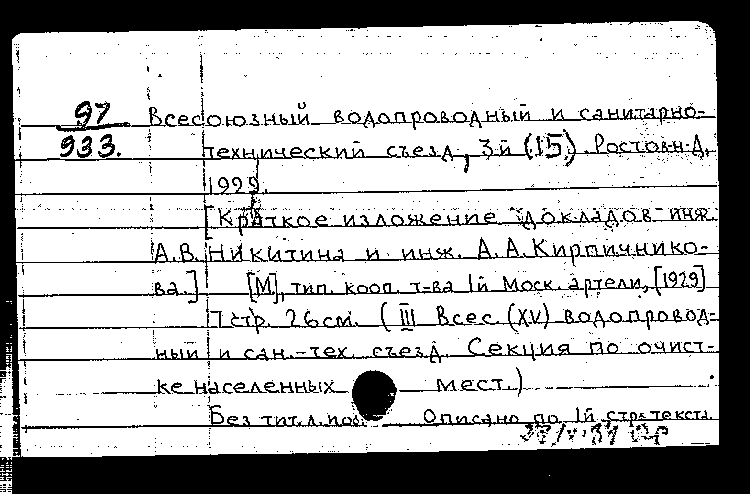 97 Всесоюзный водопроводный и санитарно-
933. технический съезд, 3й (15). Ростов н-Д.
1929.
[Краткое изложение докладов инж.
А.В. Никитина и инж. А.А. Кирпичнико-
ва.] [М], тип. кооп. т-ва 1й Моск. артели, [1929]
7 стр. 26 см. (III Всес. (XV) водопровод-
ный и сан.-тех. съезд. Секция по очист-
ке населенных мест.)
Без тит. л. Описано по 1й стр. текста